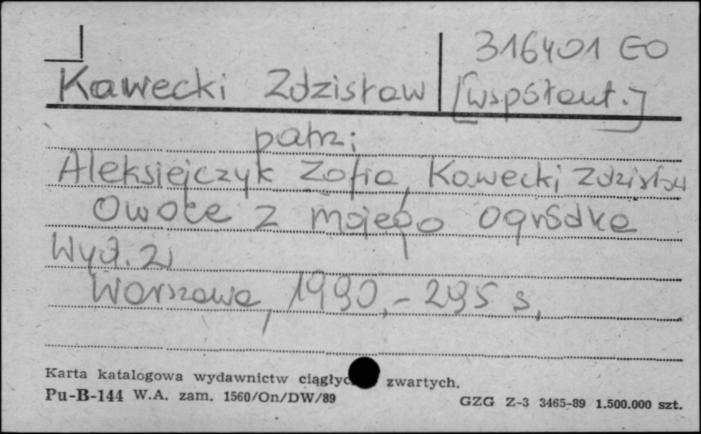 316401 EO
Kawecki Zdzisław [współaut.]
patrz:
Aleksiejczyk Zofia, Kawecki Zdzisław
Owoce z mojego ogródka
Wyd. 2
Warszawa, 1990, - 295 s,
Karta katalogowa wydawnictw ciągłych zwartych.
Pu-B-144 W.A. zam. 1560/On/DW/89
GZG Z-3 3465-89 1.500.000 szt.